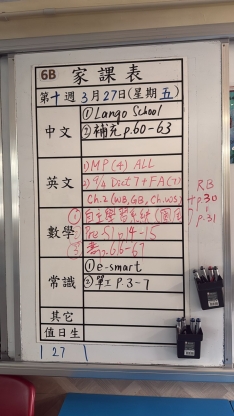 6B 家課表
第十週3月27日(星期五)
中文
① Lango School
② 補充 p.60-63
英文
1) MP (4) ALL
2) 9/4 Dict 7 + FA(7)
Ch.2 (WB, GB, Ch. WS)
RB
p.30
p.31
數學
① 自主學習系統
p.14-15
p.66-67
常識
① e-smart
② 單工 p.3-7
其它
值日生
1 27 1